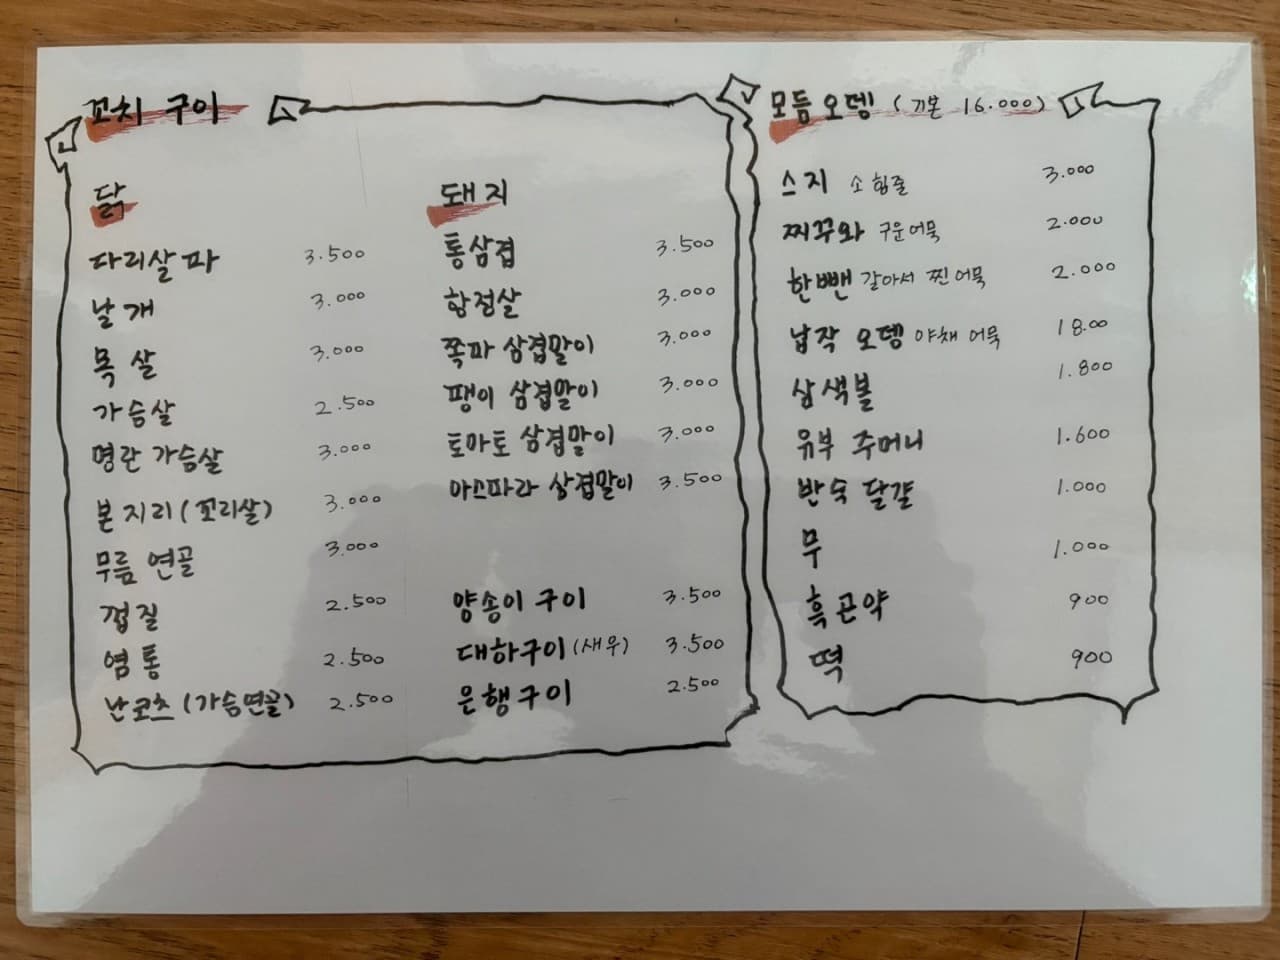 꼬치 구이
닭
다리살 파 3.500
날개 3.000
목살 3.000
가슴살 2.500
명란 가슴살 3.000
본지리 (꼬리살) 3.000
무릎 연골 3.000
껍질 2.500
염통 2.500
난코츠 (가슴연골) 2.500
돼지
통삼겹 3.500
항정살 3.000
쪽파 삼겹말이 3.000
팽이 삼겹말이 3.000
토마토 삼겹말이 3.000
아스파라 삼겹말이 3.500
양송이 구이 3.500
대하구이 (새우) 3.500
은행구이 2.500
모듬 오뎅 (기본 16.000)
스지 소힘줄 3.000
찌꾸와 구운어묵 2.000
한뺀 갈아서 찐어묵 2.000
납작 오뎅 야채 어묵 18.00
삼색볼 1.800
유부 주머니 1.600
반숙 달걀 1.000
무 1.000
흑곤약 900
떡 900